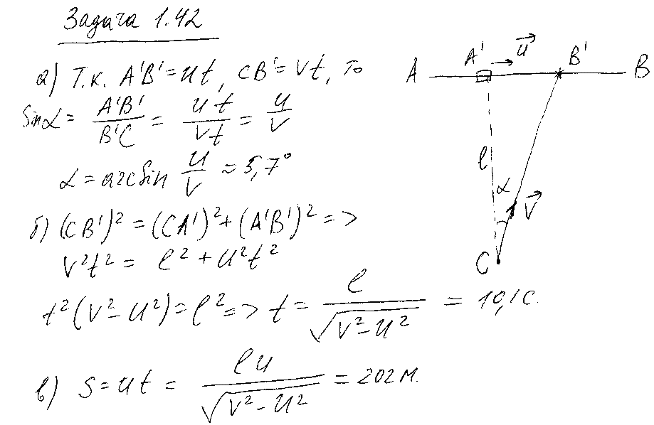 Задача 1.42
а) Т.к. A'B'=ut, CB'=Vt, то
Sinα = A'B'/B'C = ut/Vt = u/V
α = arcsin u/V ≈ 5,7°
б) (CB')² = (CA')² + (A'B')² =>
V²t² = l² + u²t²
t²(V²-u²) = l² => t = l/√(V²-u²) = 10,1 с.
в) S = ut = lu/√(V²-u²) = 202 м.
A A' u⃗ B' B
l
α V⃗
C